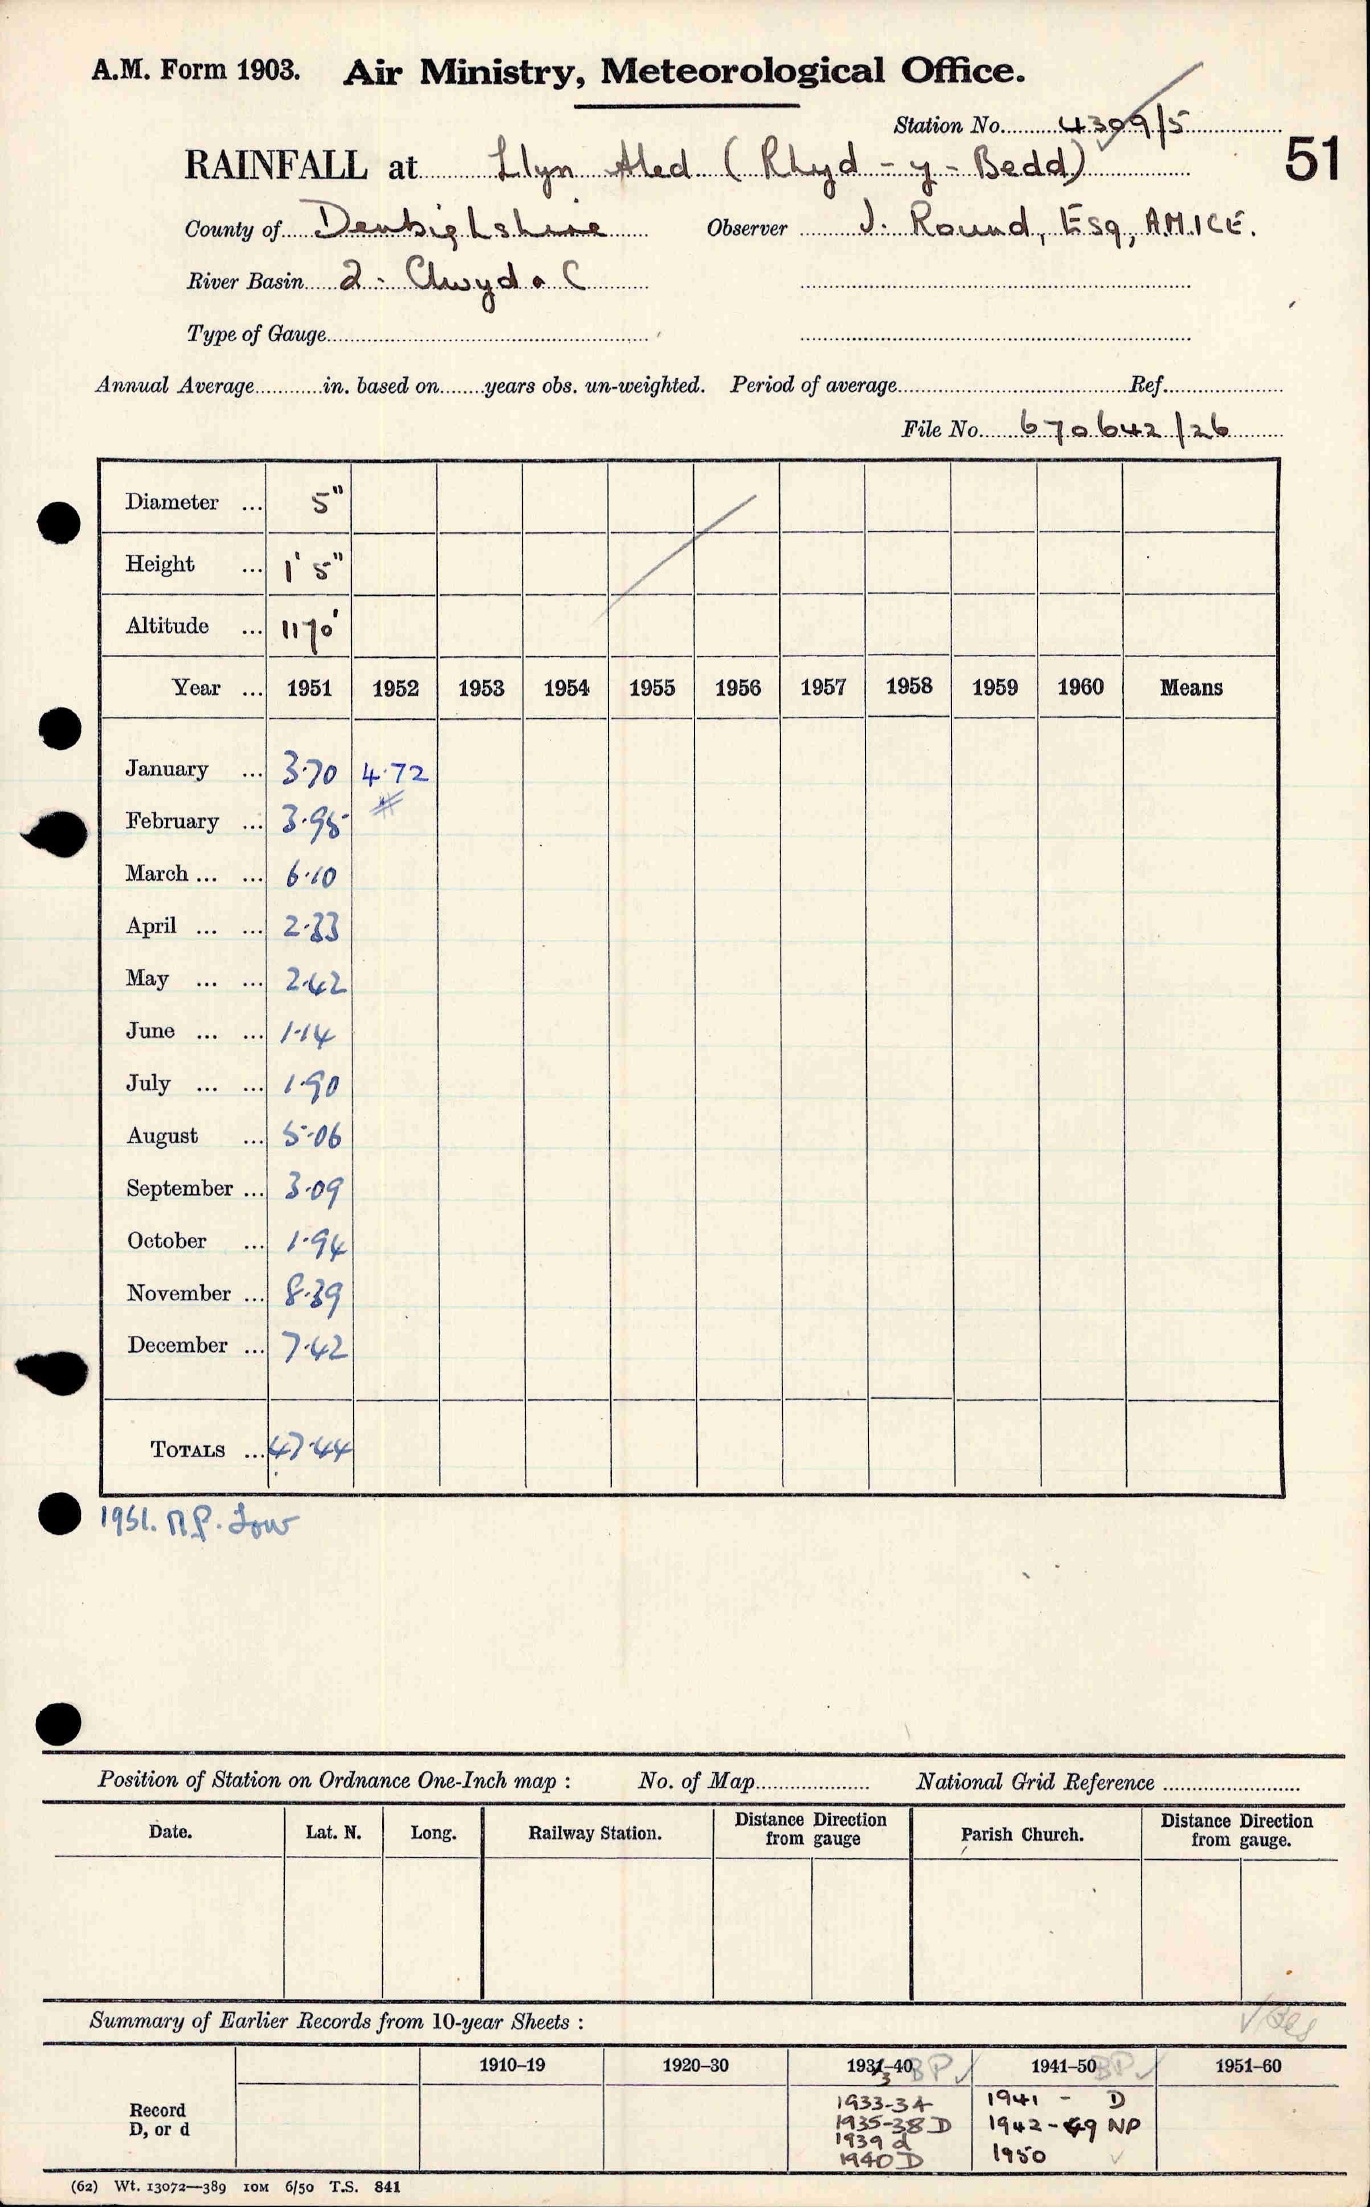 A.M. Form 1903. Air Ministry, Meteorological Office.
Station No. 4309/5
51
RAINFALL at Llyn Aled (Rhyd-y-Bedd)
County of Denbighshire Observer J. Round, Esq, A.M.I.C.E.
River Basin 2. Clwyd & C
Type of Gauge
Annual Average in. based on years obs. un-weighted. Period of average Ref.
File No. 670642/26
Diameter ... 5"
Height ... 1' 5"
Altitude ... 1170'
Year ... 1951 1952 1953 1954 1955 1956 1957 1958 1959 1960 Means
January ... 3.70 4.72
February ... 3.95
March ... ... 6.10
April ... ... 2.33
May ... ... 2.42
June ... ... 1.14
July ... ... 1.90
August ... 5.06
September ... 3.09
October ... 1.94
November ... 8.39
December ... 7.42
TOTALS ... 47.44
1951. N.P. Low
Position of Station on Ordnance One-Inch map : No. of Map National Grid Reference
Date. Lat. N. Long. Railway Station. Distance from Direction gauge Parish Church. Distance from Direction gauge.
Summary of Earlier Records from 10-year Sheets :
1910–19 1920–30 1931–40 BP ✓ 1941–50 BP ✓ 1951–60
3
Record D, or d
1933-34 1941 - D
1935-38 D 1942-49 NP
1939 d
1940 D 1950 ✓
(62) Wt. 13072—389 10M 6/50 T.S. 841